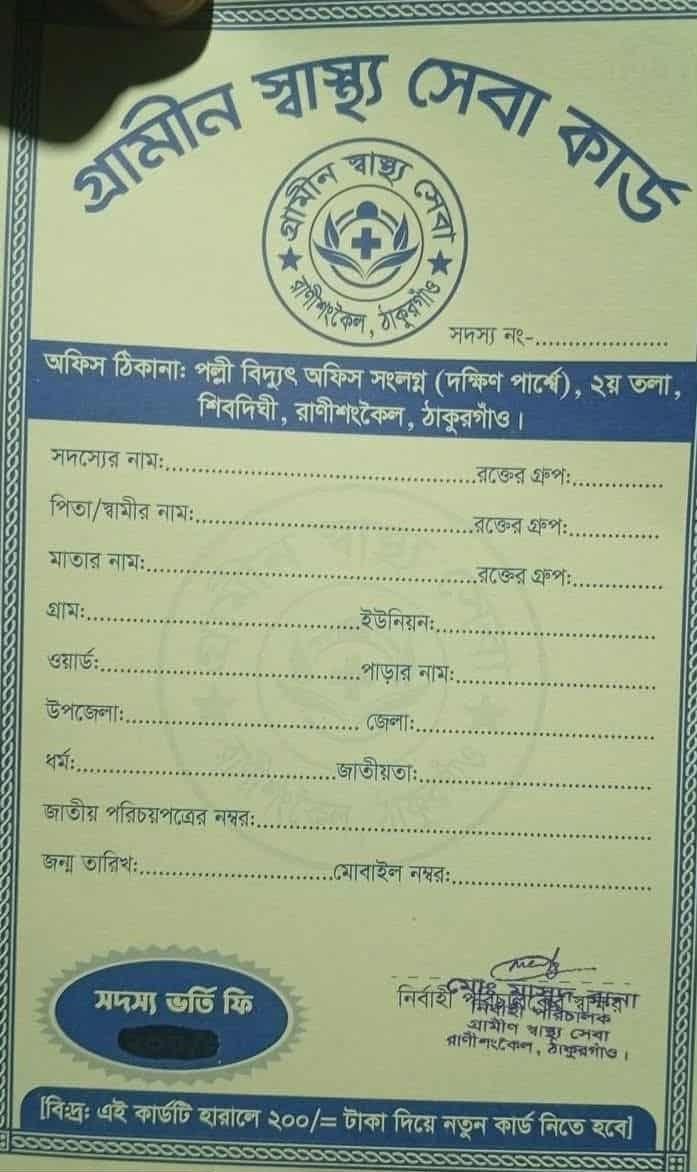 গ্রামীন স্বাস্থ্য সেবা কার্ড
গ্রামীন স্বাস্থ্য সেবা
রাণীশংকৈল, ঠাকুরগাঁও
সদস্য নং-....................
অফিস ঠিকানা: পল্লী বিদ্যুৎ অফিস সংলগ্ন (দক্ষিণ পার্শ্বে), ২য় তলা,
শিবদিঘী, রাণীশংকৈল, ঠাকুরগাঁও।
সদস্যের নাম:..................................................রক্তের গ্রুপ:..............
পিতা/স্বামীর নাম:............................................রক্তের গ্রুপ:..............
মাতার নাম:.....................................................রক্তের গ্রুপ:..............
গ্রাম:............................................ইউনিয়ন:...................................
ওয়ার্ড:..........................................পাড়ার নাম:................................
উপজেলা:...................................... জেলা:.......................................
ধর্ম:..........................................জাতীয়তা:.....................................
জাতীয় পরিচয়পত্রের নম্বর:................................................................
জন্ম তারিখ:...............................মোবাইল নম্বর:................................
সদস্য ভর্তি ফি
মোঃ মাসুদ রানা
নির্বাহী পরিচালকের স্বাক্ষর
নির্বাহী পরিচালক
গ্রামীণ স্বাস্থ্য সেবা
রাণীশংকৈল, ঠাকুরগাঁও।
[বি:দ্র: এই কার্ডটি হারালে ২০০/= টাকা দিয়ে নতুন কার্ড নিতে হবে]